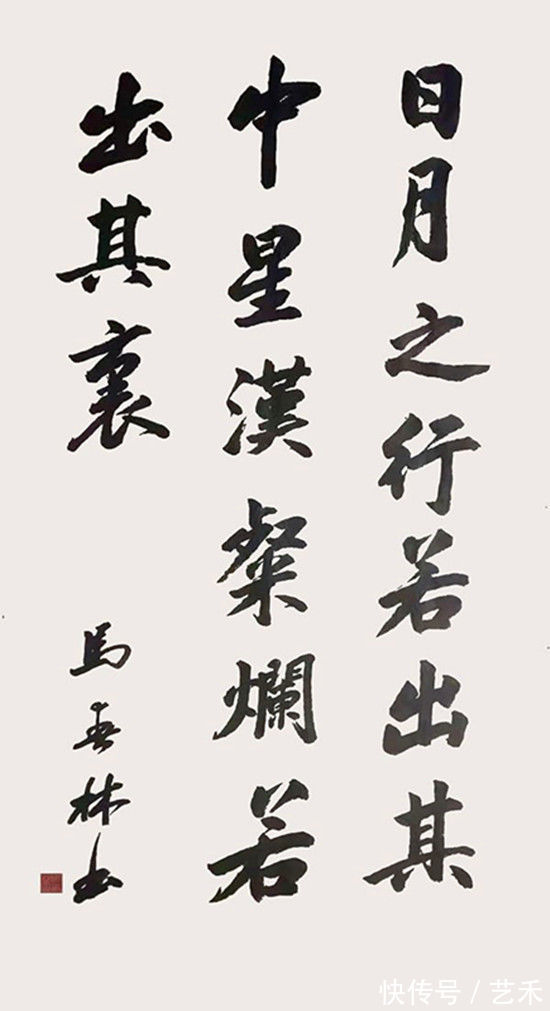 日月之行若出其
中星漢粲爛若
出其裏
馬春林书
快传号/艺禾